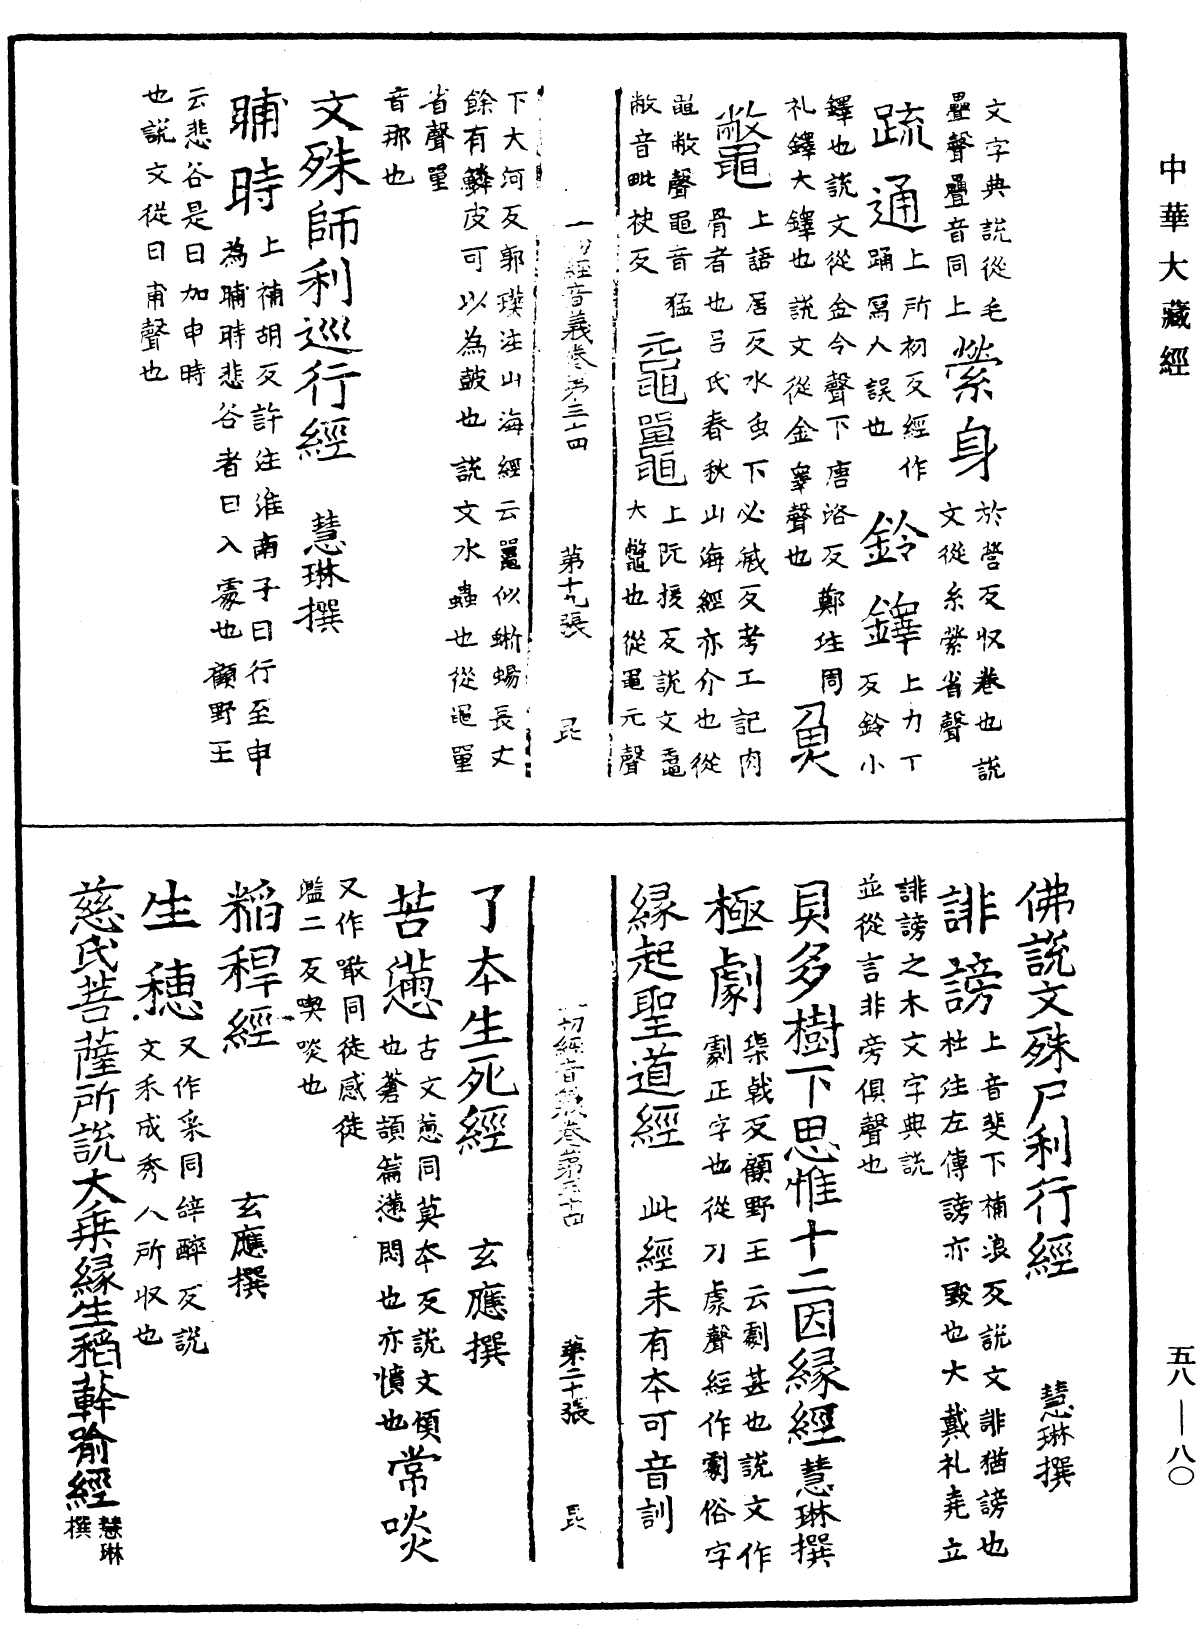 中華大藏經
文字典說從毛
疊聲疊音同上
縈身
於營反収卷也說
文從糸縈省聲
疏通
上所初反經作
踊寫人誤也
鈴鐸
上力丁
反鈴小
鐸也說文從金令聲下唐洛反鄭注周
礼鐸大鐸也說文從金睪聲也
鼈
上語居反水虫下必滅反考工記肉
骨者也呂氏春秋山海經亦介也從
黽敝聲黽音猛
敝音毗袂反
黿鼉
上阮援反說文黿
大鼈也從黽元聲
一切經音義卷第三十四 第十九張 昃
下大河反郭璞注山海經云鼉似蜥蜴長丈
餘有鱗皮可以為鼓也說文水蟲也從黽單
省聲單
音那也
文殊師利巡行經 慧琳撰
晡時
上補胡反許注淮南子日行至申
為晡時悲谷者日入處也顧野王
云悲谷是日加申時
也說文從日甫聲也
佛說文殊尸利行經 慧琳撰
誹謗
上音斐下補浪反說文誹猶謗也
杜注左傳謗亦毀也大戴礼堯立
誹謗之木文字典說
並從言非旁俱聲也
貝多樹下思惟十二因緣經 慧琳撰
極劇
渠戟反顧野王云劇甚也說文作
劇正字也從刀豦聲經作劇俗字
緣起聖道經 此經未有本可音訓
一切經音義卷第三十四 第二十張 昃
了本生死經 玄應撰
苦懣
古文悗同莫本反說文煩
也蒼頡篇懣悶也亦憤也
常啖
又作噉同徒感徒
濫二反喫啖也
稻稈經 玄應撰
生穗
又作采同辤醉反說
文禾成秀人所収也
慈氏菩薩所說大乘緣生稻𦼮喻經 慧琳撰
五八—八〇